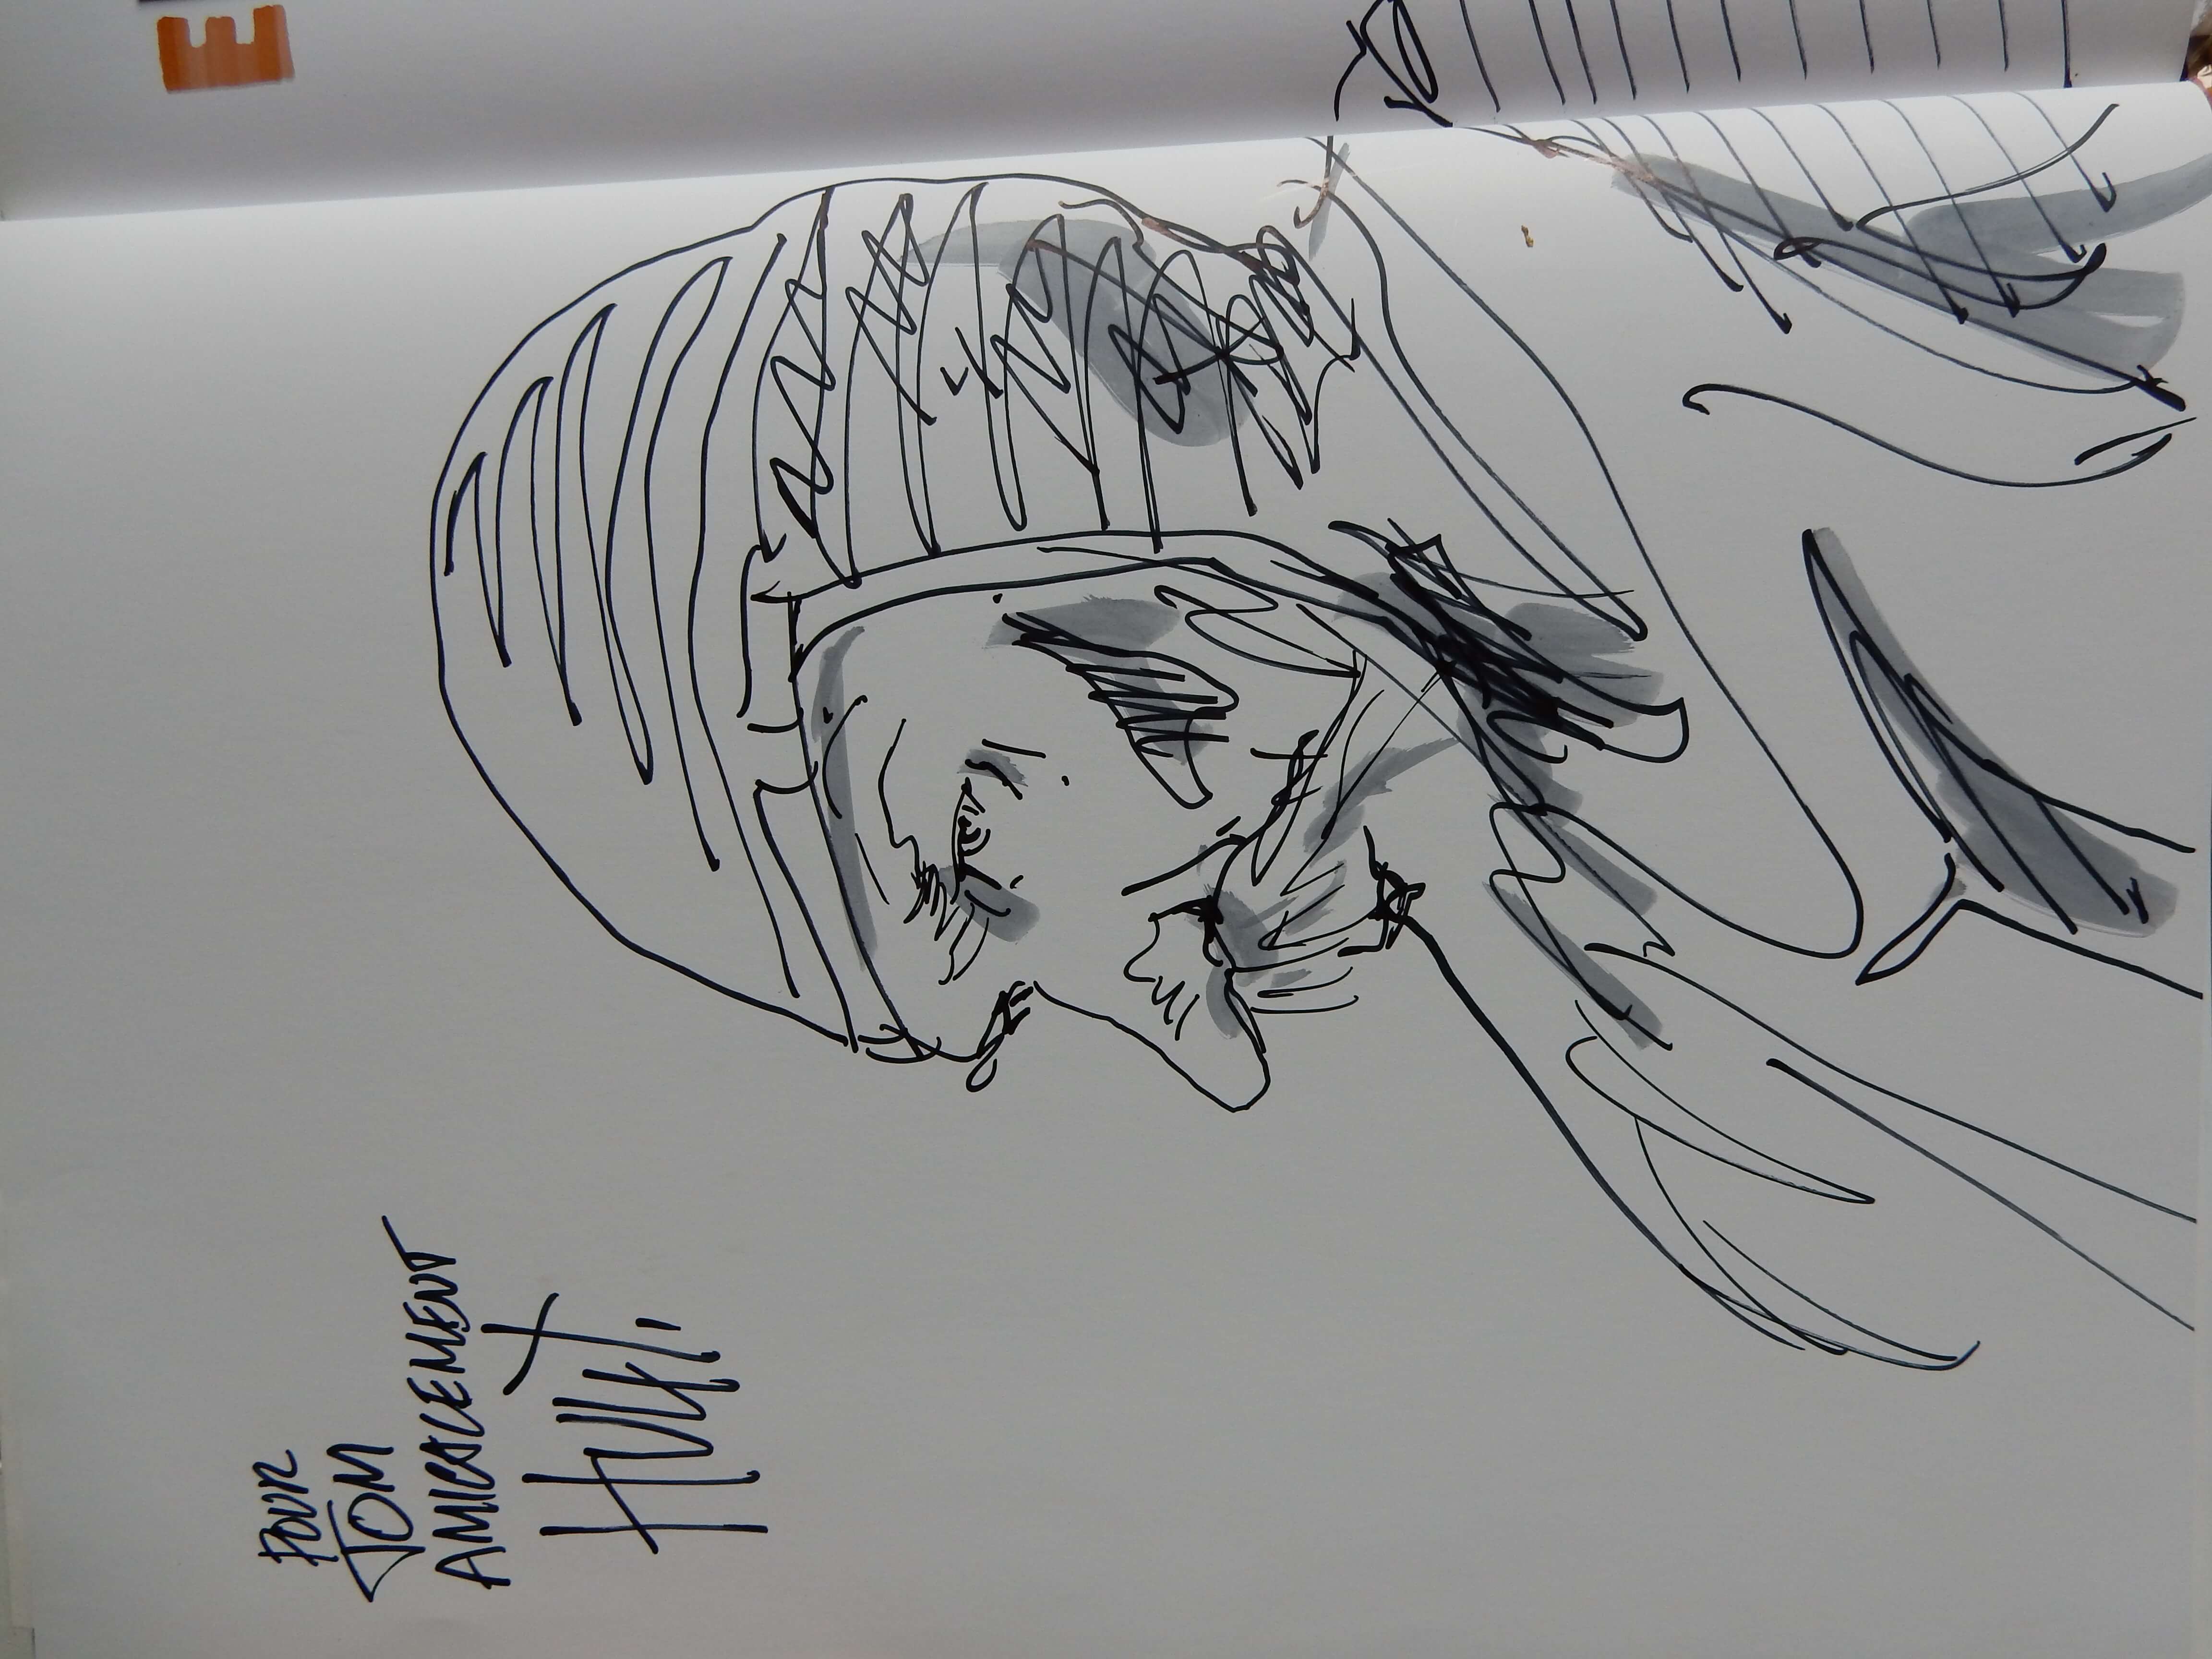 POUR
TOM
AMICALEMENT
HULET.
E